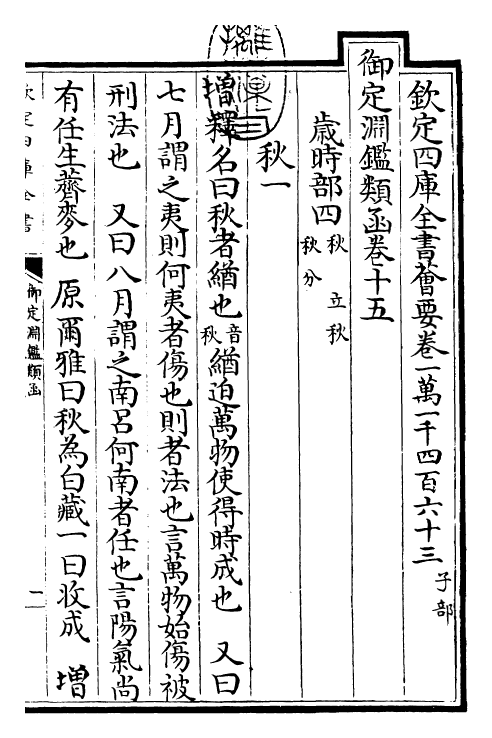 欽定四庫全書薈要卷一萬一千四百六十三 子部
御定淵鑑類函卷十五
歲時部四 秋 立秋 秋分
秋一
增釋名曰秋者緧也音秋緧迫萬物使得時成也 又曰
七月謂之夷則何夷者傷也則者法也言萬物始傷被
刑法也 又曰八月謂之南呂何南者任也言陽氣尚
有任生薺麥也 原爾雅曰秋為白藏一曰收成 增
欽定四庫全書
御定淵鑑類函